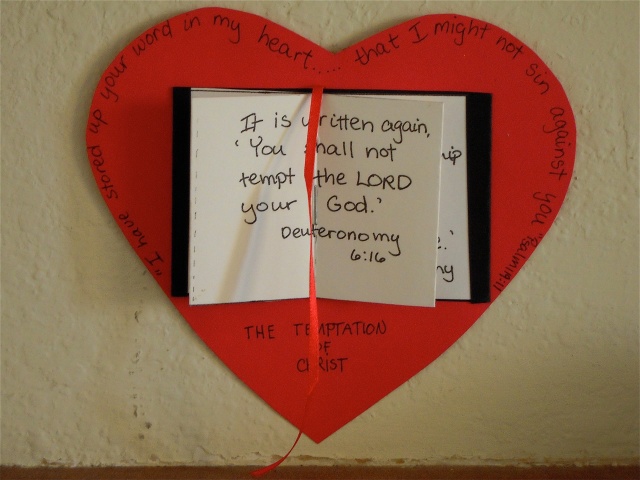 "I have stored up your word in my heart..... that I might not sin against you" Psalm 119:11
It is written again,
'You shall not
tempt the LORD
your God.'
Deuteronomy
6:16
THE TEMPTATION
OF
CHRIST